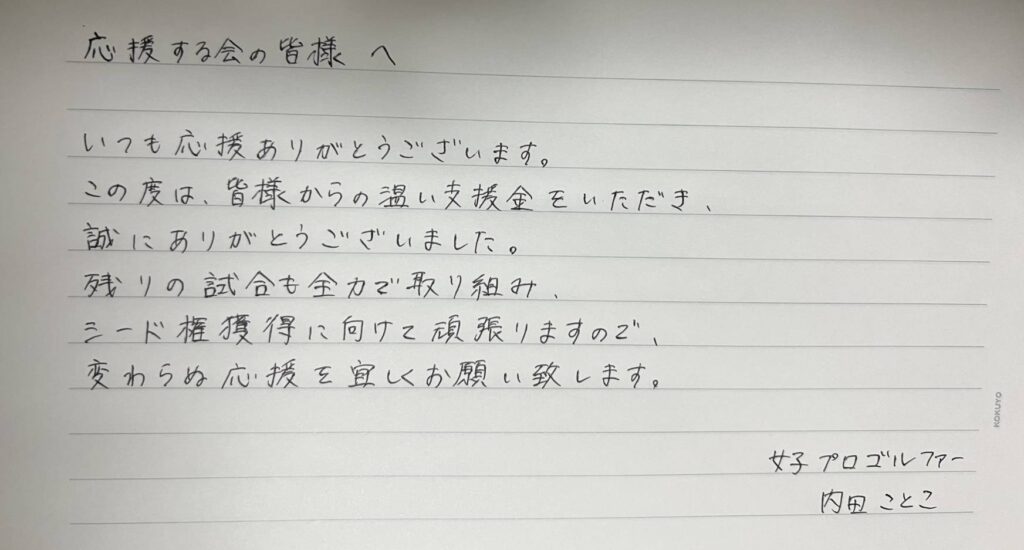 応援する会の皆様 へ
いつも応援ありがとうございます。
この度は、皆様からの温い支援金をいただき、
誠にありがとうございました。
残りの試合も全力で取り組み、
シード権獲得に向けて頑張りますので、
変わらぬ応援を宜しくお願い致します。
KOKUYO
女子プロゴルファー
内田ことこ